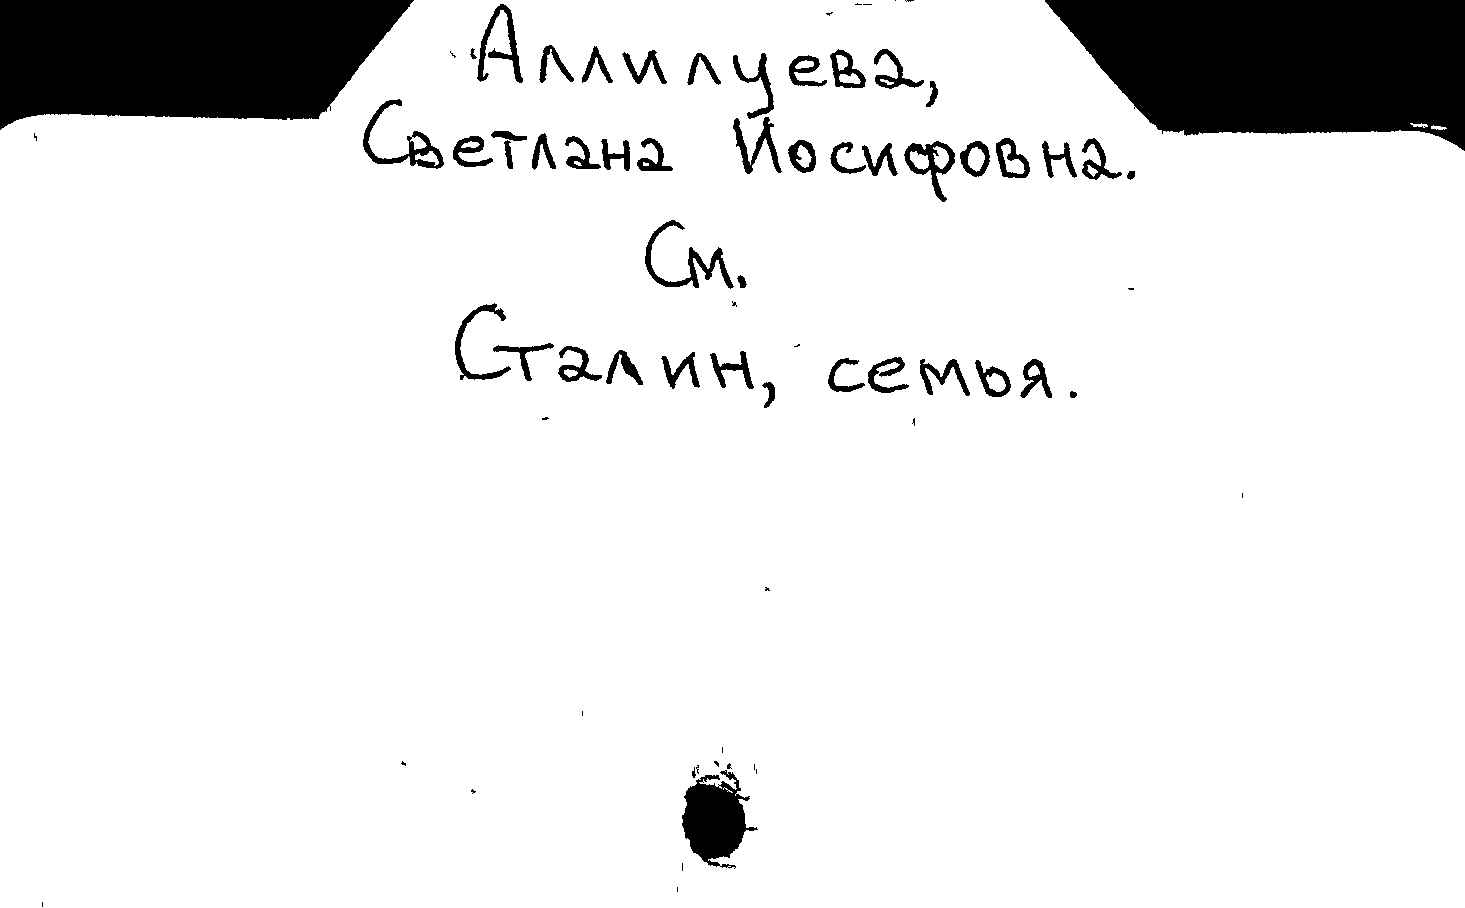 Аллилуева,
Светлана Йосифовна.
См.
Сталин, семья.